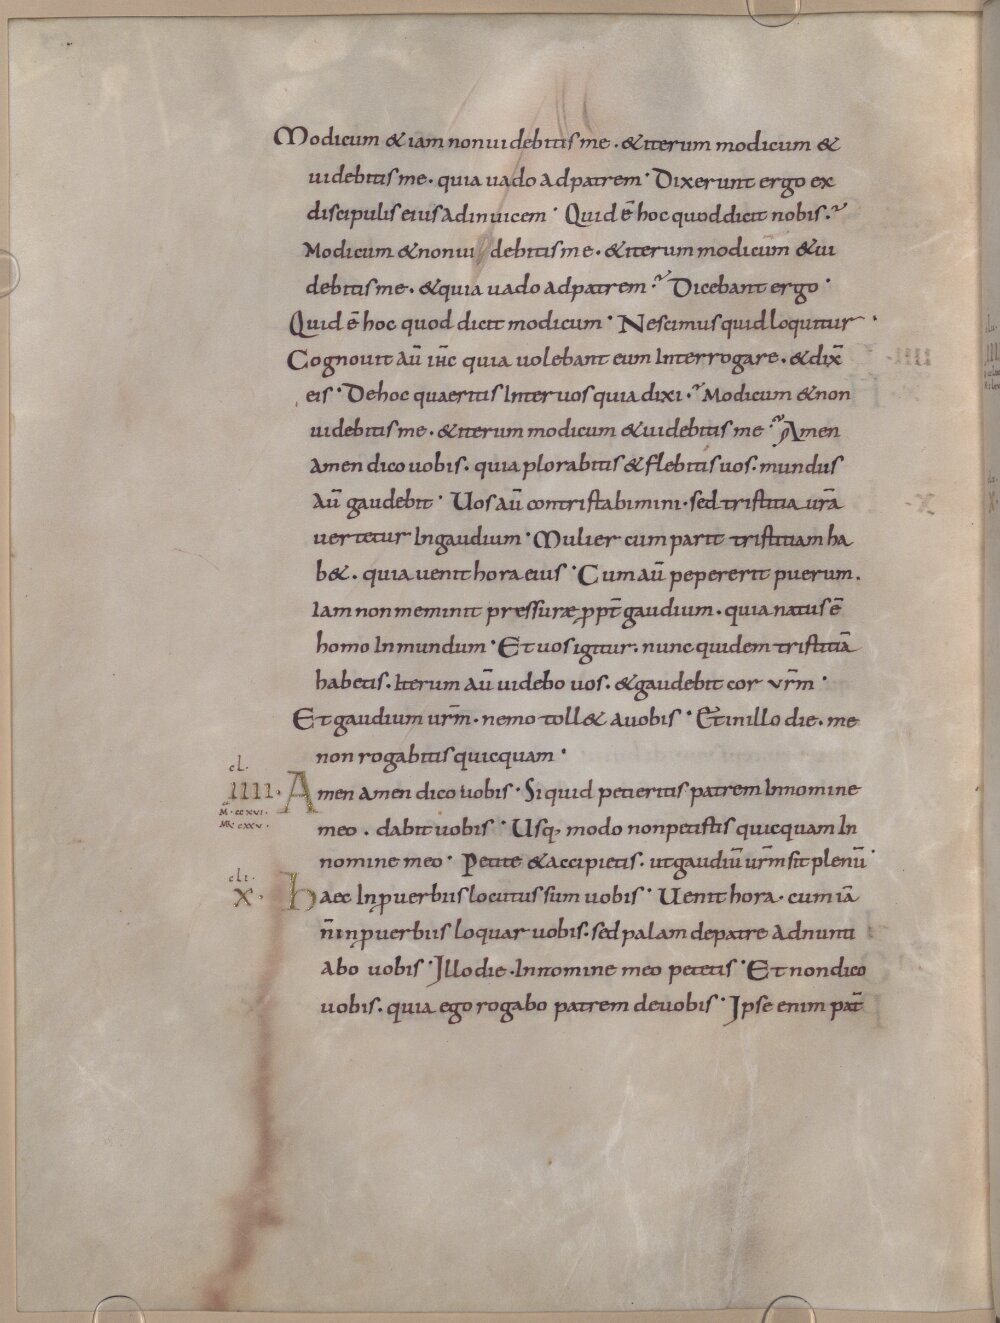 Modicum & iam non uidebitis me . & iterum modicum &
uidebitis me . quia uado ad patrem · Dixerunt ergo ex
discipulis eius adinuicem · Quid ē hoc quod dicit nobis .
Modicum & non ui debitis me . & iterum modicum & ui
debitis me . & quia uado ad patrem . Dicebant ergo ·
Quid ē hoc quod dicit modicum · Nescimus quid loquitur ·
Cognouit aū ihc quia uolebant eum Interrogare . & dix̄
eis · De hoc quaeritis Inter uos quia dixi . Modicum & non
uidebitis me . & iterum modicum & uidebitis me . Amen
amen dico uobis . quia plorabitis & flebitis uos . mundus
aū gaudebit · Uos aū contristabimini . sed tristitia ur̄a
uertetur In gaudium · Mulier cum parit tristitiam ha
b& . quia uenit hora eius · Cum aū pepererit puerum .
Iam non meminit pressuræ ꝓpt̄ gaudium . quia natus ē
homo In mundum · Et uos igitur . nunc quidem tristitiā
habetis . Iterum aū uidebo uos . & gaudebit cor vr̄m ·
Et gaudium ur̄m . nemo toll& a uobis · Et in illo die . me
non rogabitis quicquam ·
cl.
IIII . Amen amen dico uobis · Si quid petieritis patrem In nomine
M . ccxvi .
meo . dabit uobis · Usq; modo non petistis quicquam In
nomine meo · Petite & accipietis . ut gaudiū ur̄m sit plenū ·
cli .
X . haec In ꝓuerbiis locutus sum uobis · Uenit hora . cum iā
n̄ in ꝓuerbiis loquar uobis . sed palam de patre adnunti
abo uobis · Illo die . In nomine meo petetis · Et non dico
uobis . quia ego rogabo patrem de uobis · Ipse enim pat̄